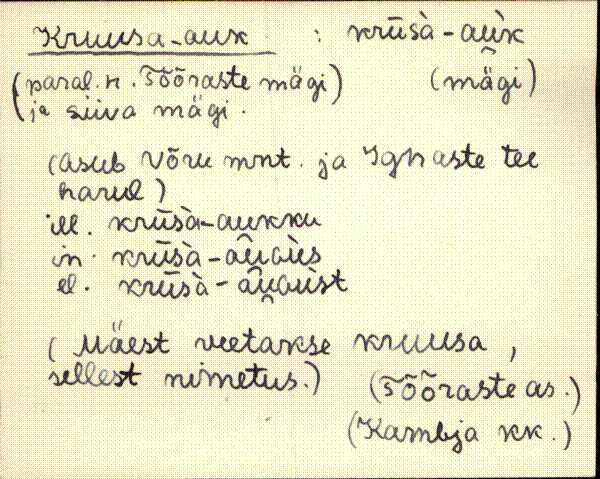 Kruusa-auk : krüsà-aùk
(paral. n. Sõõraste mägi) (mägi)
ja siiva mägi.
(asub Võru mnt. ja Ignaste tee
harul)
ill. krüsà-aukku
in. krüsà-aûgùs
el. krüsà-aûgùst
(Mäest veetakse kruusa,
sellest nimetus.) (Sõõraste as.)
(Kambja kk.)